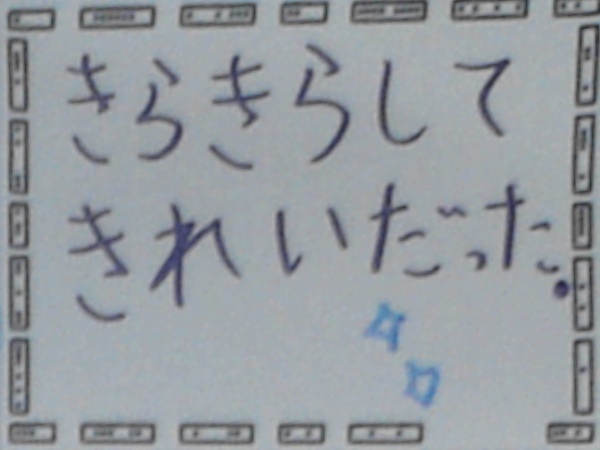 きらきらして
きれいだった.